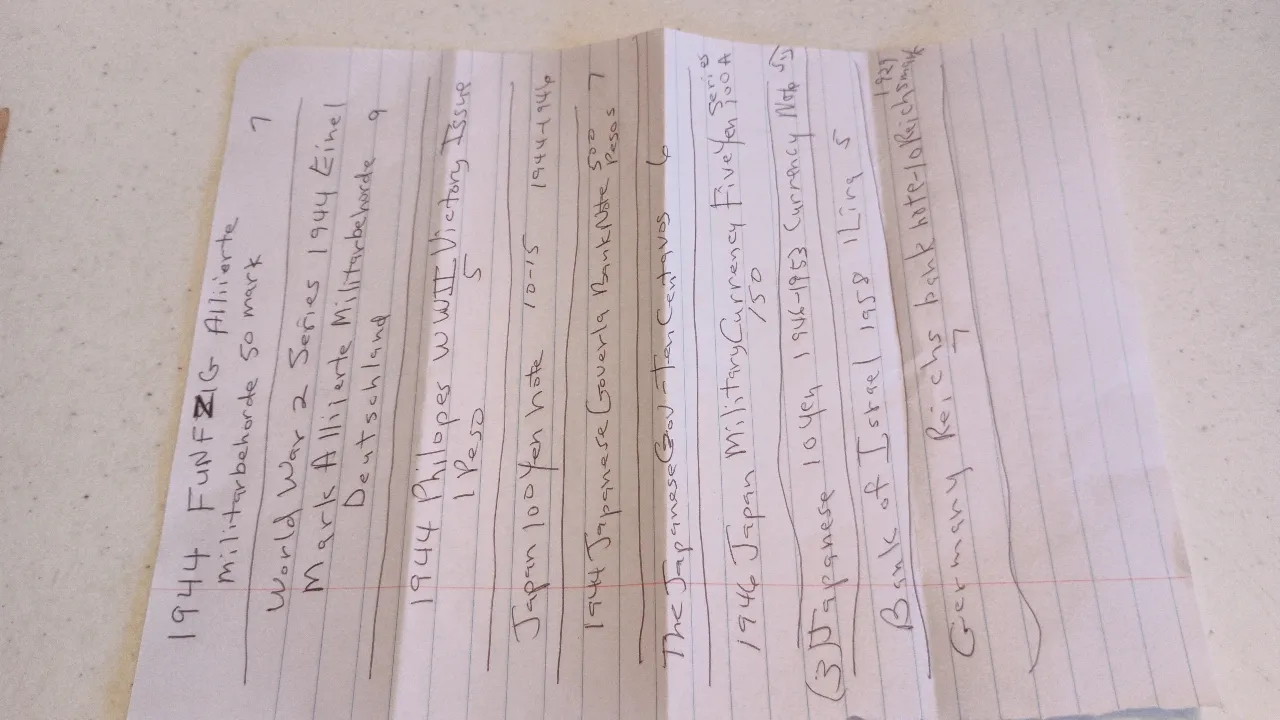 1944 FUNFZIG Alliierte
Militarbehorde 50 mark 7
World War 2 Series 1944 Einel
Mark Alliierte Militarbehorde 9
Deutschland
1944 Philopes WWII Victory Issue
1 Peso 5
Japan 100 Yen note 10-15 1944-1946
1944 Japanese Goverla Bank Note 500 Pesos 7
The Japanese Gov - Ten Centavos 6
1946 Japan Military Currency Five Yen Series 100 A
150
(3) Japanese 10 yen 1946-1953 Currency Note
Bank of Israel 1958 1 Lira 5
Germany Reichs bank note-10 Reichsmark 1929
7